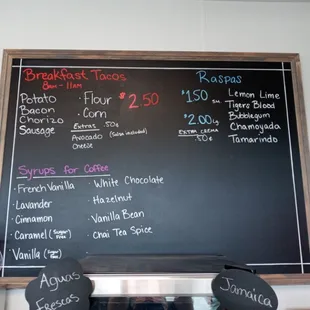 Breakfast Tacos
8am - 11am
Potato
Bacon
Chorizo
Sausage
· Flour
· Corn
$2.50
Extras .50¢
Avocado (Salsa included)
Cheese
Raspas
$1.50 sm.
$2.00 Lg
Extra Crema
.50¢
Lemon Lime
Tigers Blood
Bubblegum
Chamoyada
Tamarindo
Syrups for Coffee
· French Vanilla
· Lavander
· Cinnamon
· Caramel (Sugar Free)
· Vanilla
· White Chocolate
· Hazelnut
· Vanilla Bean
· Chai Tea Spice
Aguas
Frescas
Jamaica